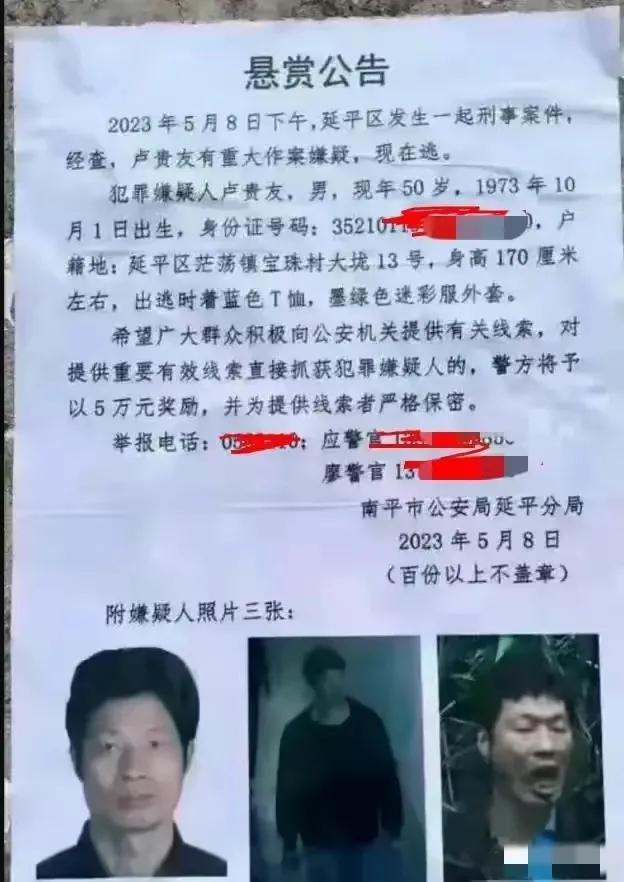 悬赏公告
2023年5月8日下午,延平区发生一起刑事案件,
经查，卢贵友有重大作案嫌疑，现在逃。
犯罪嫌疑人卢贵友，男，现年50岁，1973年10
月1日出生，身份证号码：3521011，户
籍地：延平区茫荡镇宝珠村大拢13号，身高170厘米
左右，出逃时着蓝色T恤，墨绿色迷彩服外套。
希望广大群众积极向公安机关提供有关线索，对
提供重要有效线索直接抓获犯罪嫌疑人的，警方将予
以5万元奖励，并为提供线索者严格保密。
举报电话：；应警官
廖警官13
南平市公安局延平分局
2023年5月8日
（百份以上不盖章）
附嫌疑人照片三张：